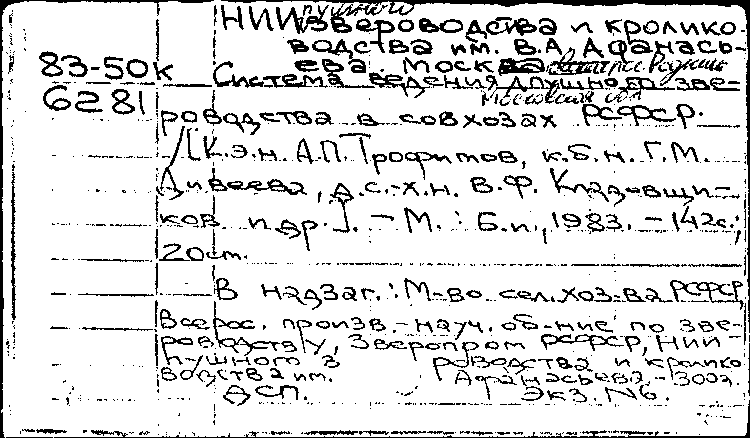 пушного
НИИ звероводства и кролико-
водства им. В.А. Афанась-
ева. Москва
83-50к Система ведения пушного зве-
Московская обл
6281 роводства в совхозах РСФСР.
/[К.э.н. А.П. Трофимов, к.б.н. Г.М.
Дивеева, д.с.-х.н. В.Ф. Кладовщи-
ков и др.]. - М. : Б.и., 1983. - 142с.;
20см.
В надзаг.: М-во сел. хоз-ва РСФСР,
Всерос. произв.-науч. об-ние по зве-
роводству, Зверопром РСФСР, НИИ
пушного зверо водства и кролико
водства им. Афанасьева. - 300э.
ДСП. Экз. №6.